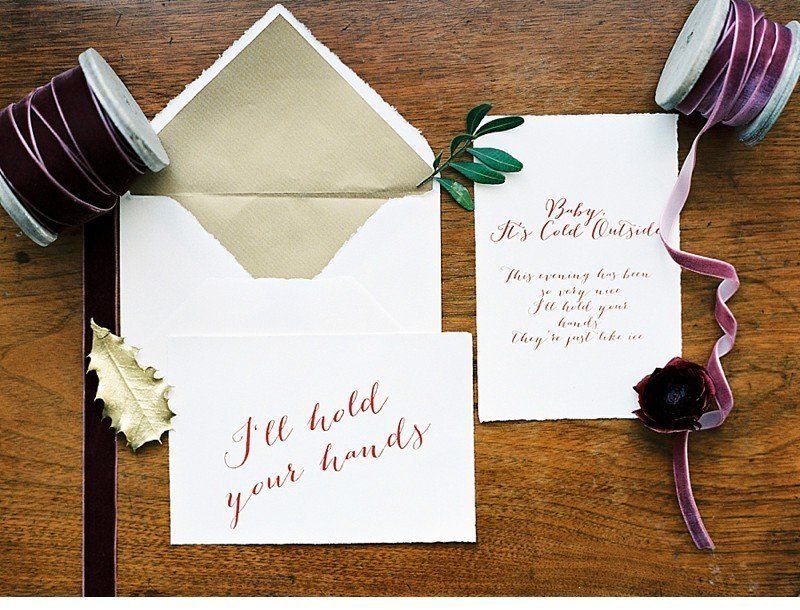 Baby,
It's Cold Outside
This evening has been
so very nice
I'll hold your
hands
they're just like ice
I'll hold
your hands